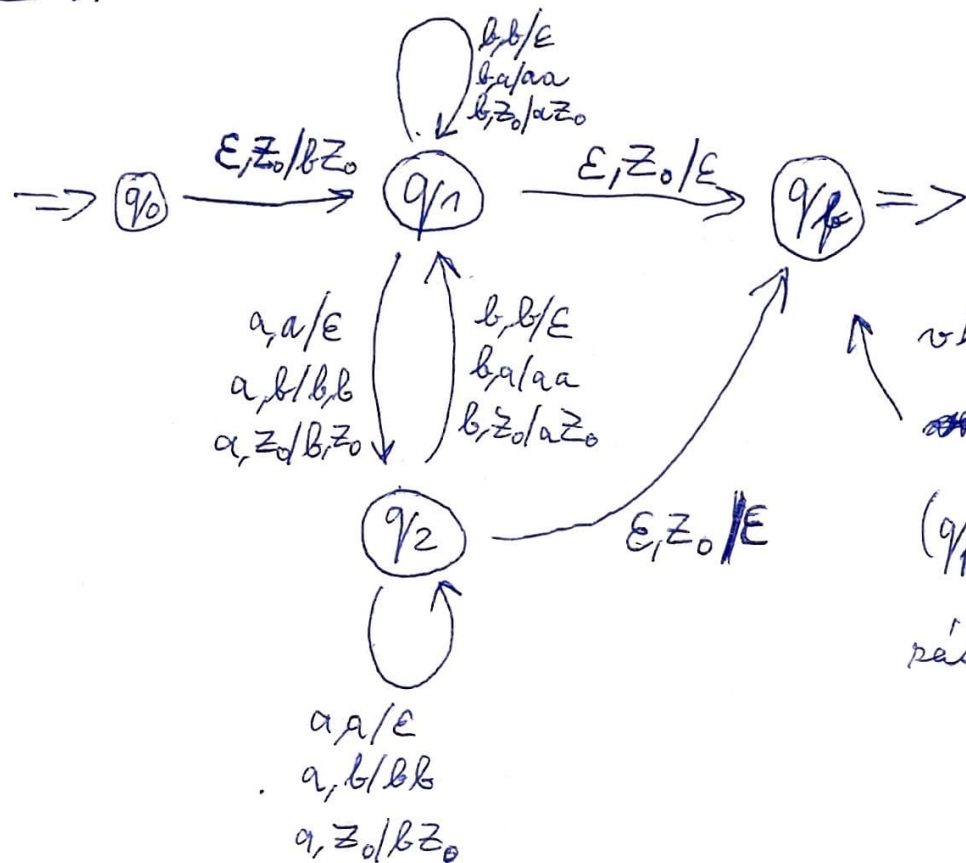 b,b/ε
b,a/aa
b,Z₀/aZ₀
ε,Z₀/bZ₀
ε,Z₀/ε
=> q₀
q₁
q_f =>
a,a/ε
a,b/b,b
a,Z₀/b,Z₀
b,b/ε
b,a/aa
b,Z₀/aZ₀
q₂
ε,Z₀/ε
(q₁
a,a/ε
a,b/bb
a,Z₀/bZ₀